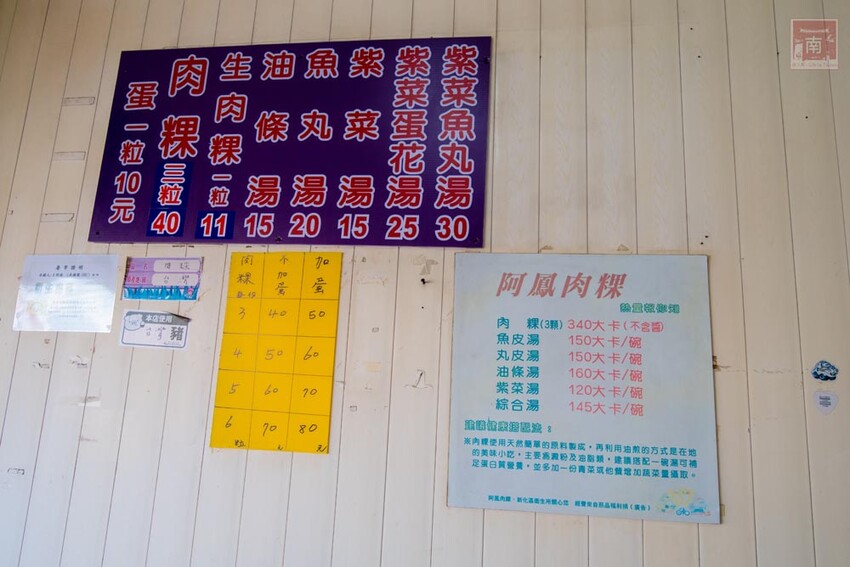 蛋一粒10元
肉粿三粒40
生肉粿一粒11
油條湯15
魚丸湯20
紫菜湯15
紫菜蛋花湯25
紫菜魚丸湯30
南
本店使用
豬
肉粿 不加蛋 加蛋
3 40 50
4 50 60
5 60 70
6粒 70元 80元
阿鳳肉粿
熱量報你知
肉 粿(3顆) 340大卡(不含醬)
魚皮湯 150大卡/碗
丸皮湯 150大卡/碗
油條湯 160大卡/碗
紫菜湯 120大卡/碗
綜合湯 145大卡/碗
建議健康搭配法：
米肉粿使用天然簡單的原料製成，再利用油煎的方式是在地
的美味小吃，主要為澱粉及油脂類，建議搭配一碗湯可補
足蛋白質營養，並多加一份青菜或他餐增加蔬菜量攝取。
阿鳳肉粿，新化區衛生所關心您 經費來自菸品福利捐（廣告）